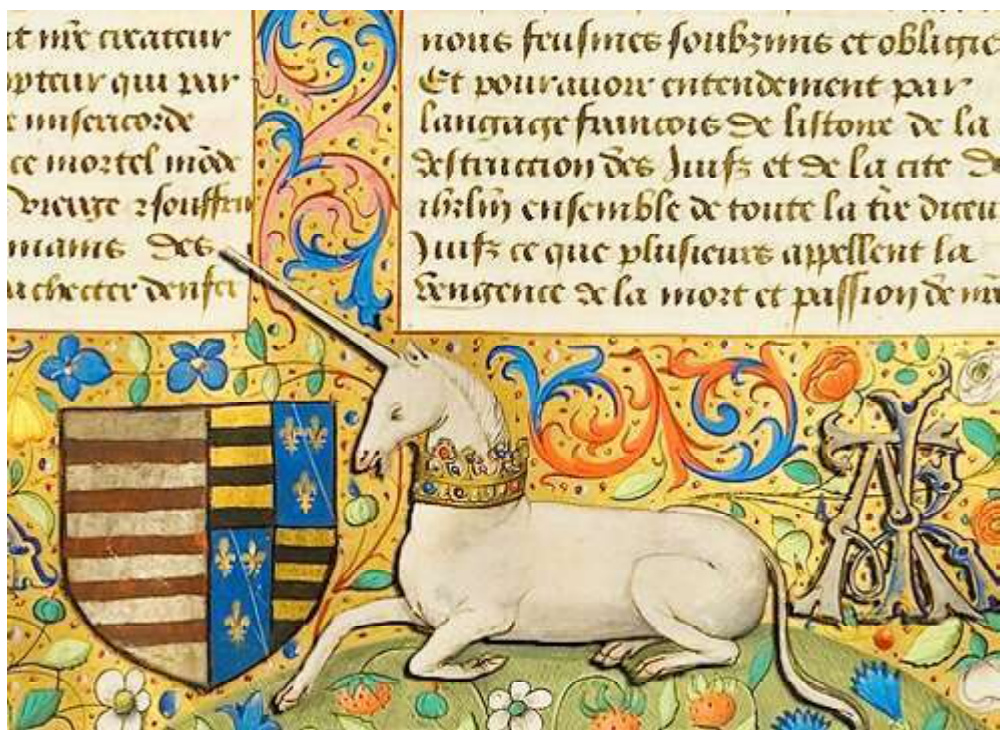 nr̄e createur
qui par
misericorde
ce mortel mōde
vierge ⁊ souffrir
mains des
denfer
nous feusmes soubzmis et obligie
Et pour auoir entendement par
langage francois de listoire de la
destruction des Juifz et de la cite de
ih̄rlm̄ ensemble de toute la tr̄e diceu
Juifz ce que plusieurs appellent la
vengence de la mort et passion de nr̄e